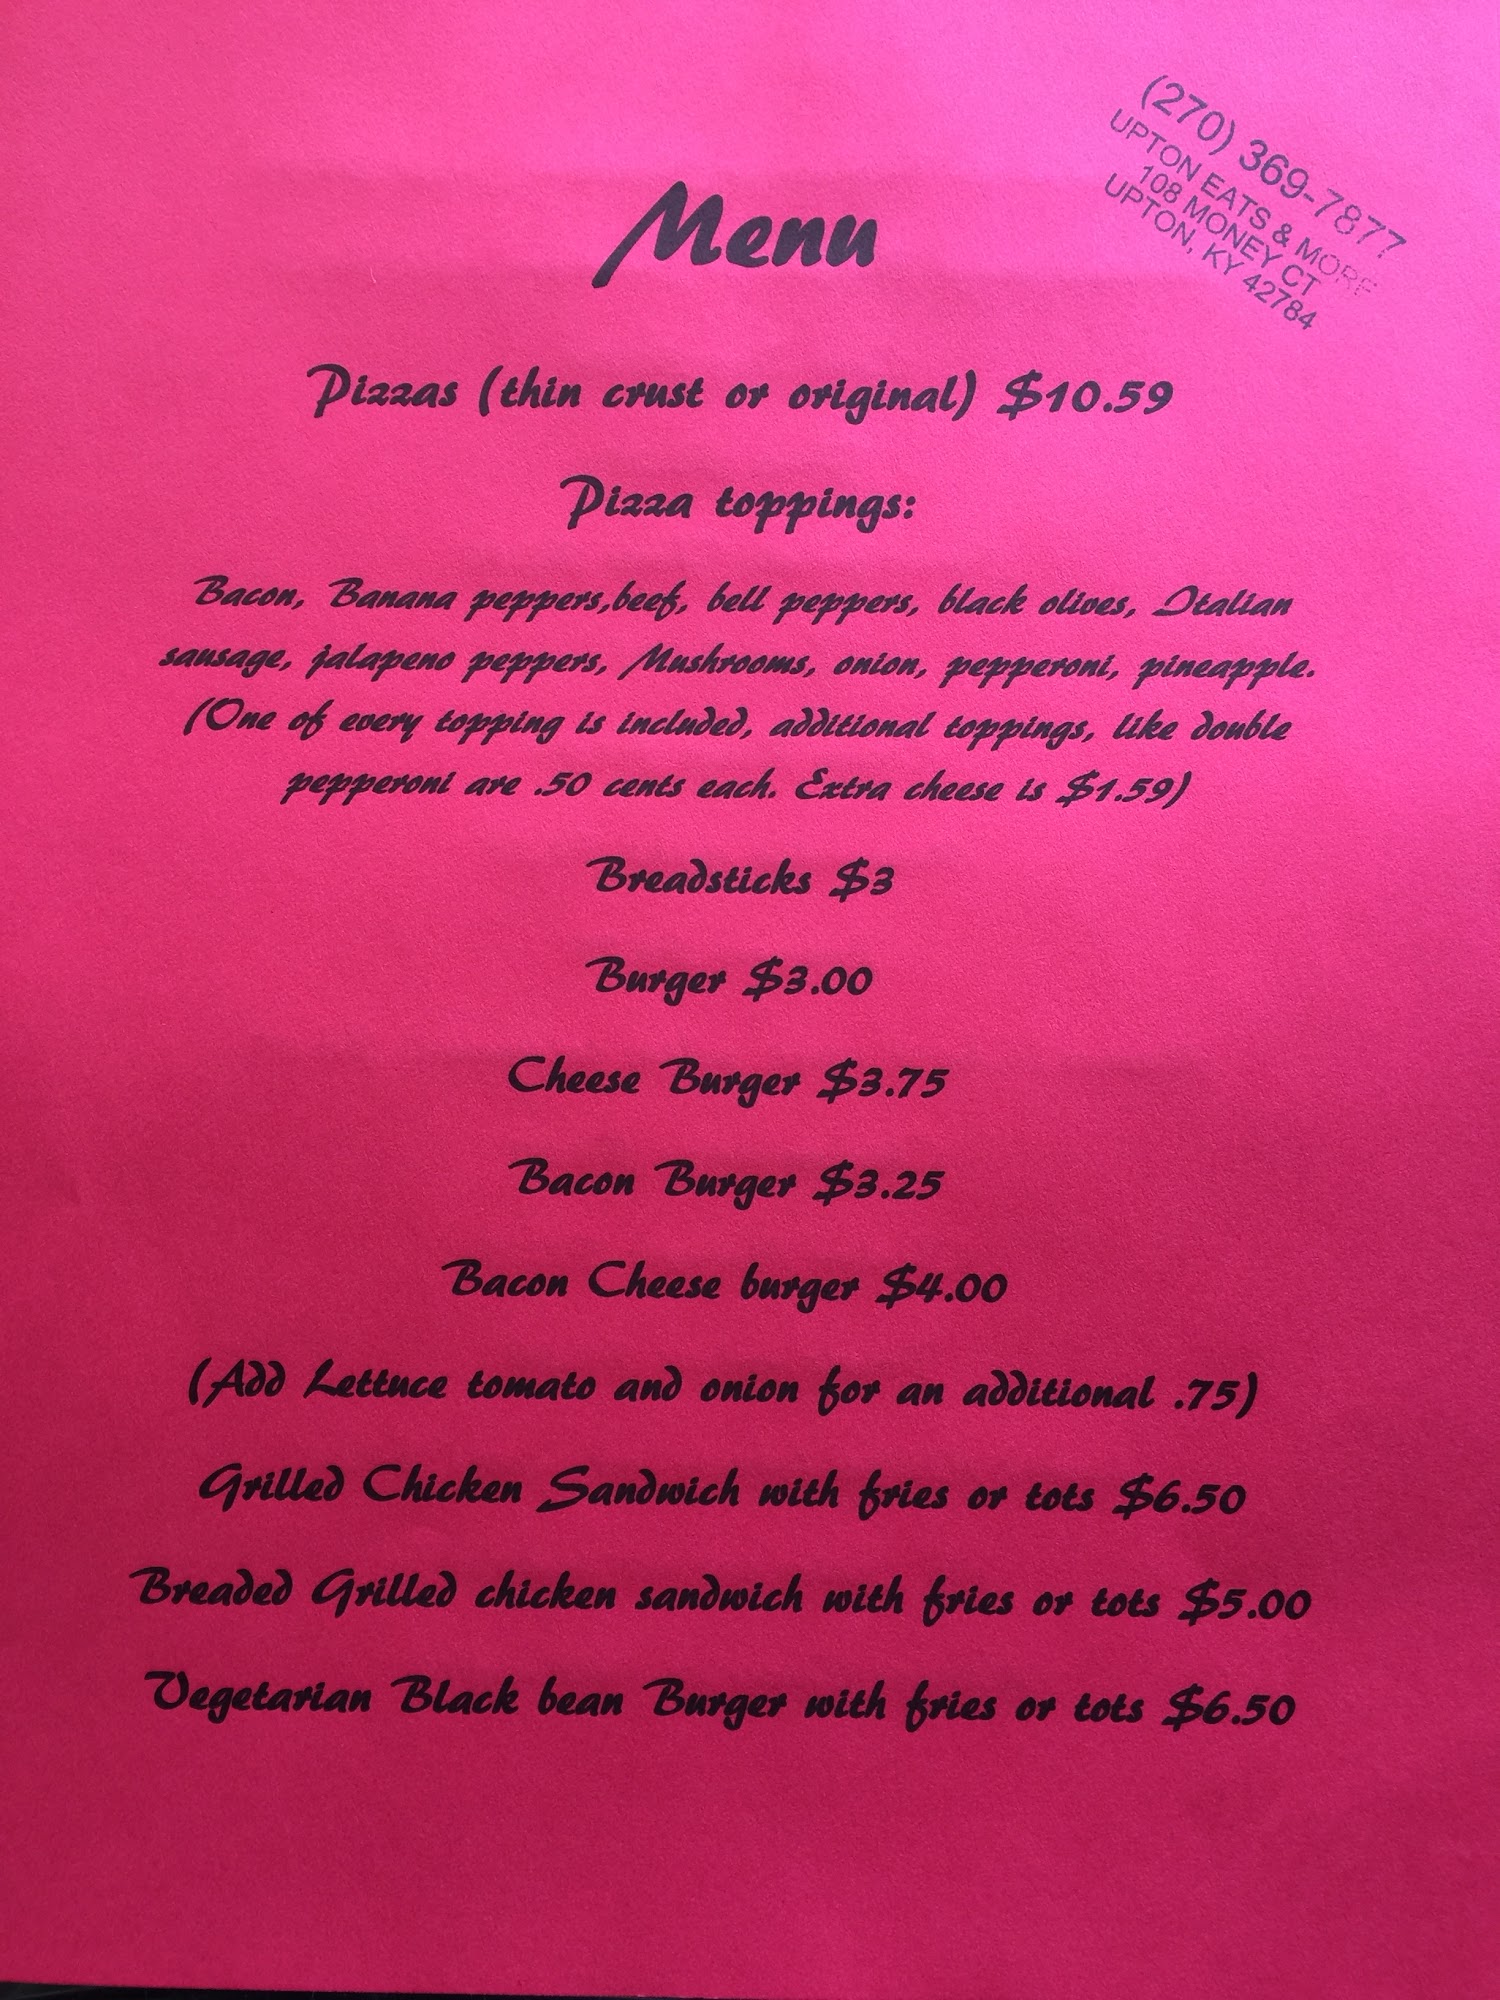 (270) 369-7877
UPTON EATS & MORE
108 MONEY CT
UPTON, KY 42784
Menu
Pizzas (thin crust or original) $10.59
Pizza toppings:
Bacon, Banana peppers,beef, bell peppers, black olives, Italian
sausage, jalapeno peppers, Mushrooms, onion, pepperoni, pineapple.
(One of every topping is included, additional toppings, like double
pepperoni are .50 cents each. Extra cheese is $1.59)
Breadsticks $3
Burger $3.00
Cheese Burger $3.75
Bacon Burger $3.25
Bacon Cheese burger $4.00
(Add Lettuce tomato and onion for an additional .75)
Grilled Chicken Sandwich with fries or tots $6.50
Breaded Grilled chicken sandwich with fries or tots $5.00
Vegetarian Black bean Burger with fries or tots $6.50